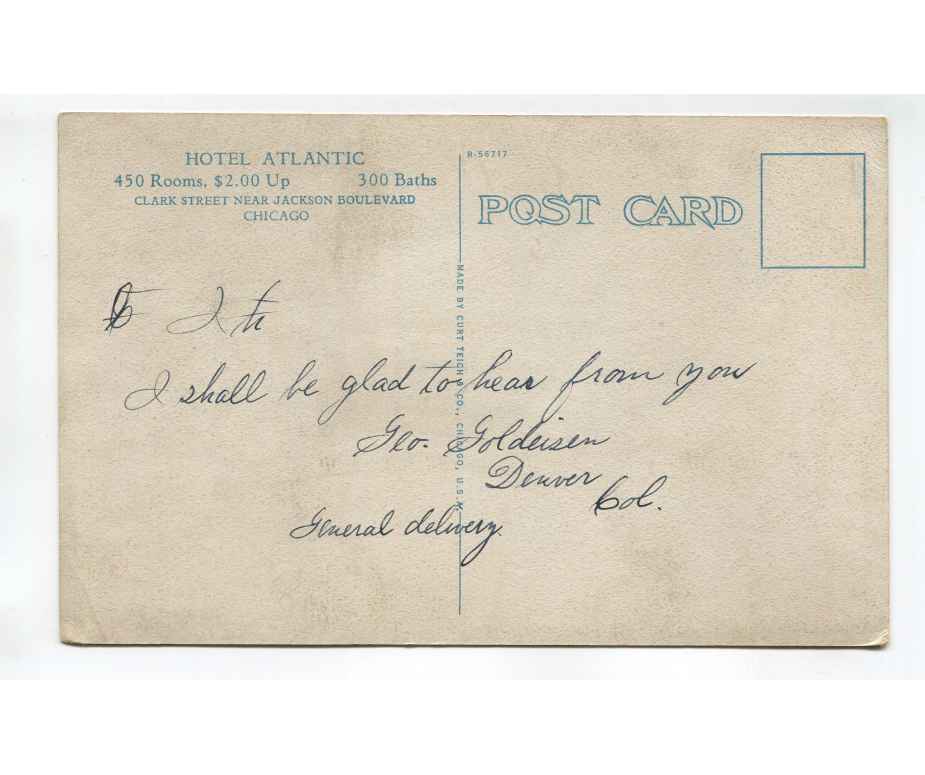 HOTEL ATLANTIC
450 Rooms, $2.00 Up 300 Baths
CLARK STREET NEAR JACKSON BOULEVARD
CHICAGO
R-56717
POST CARD
MADE BY CURT TEICH & CO., CHICAGO, U.S.A.
I shall be glad to hear from you
Geo. Goldeisen
Denver
Col.
General delivery.